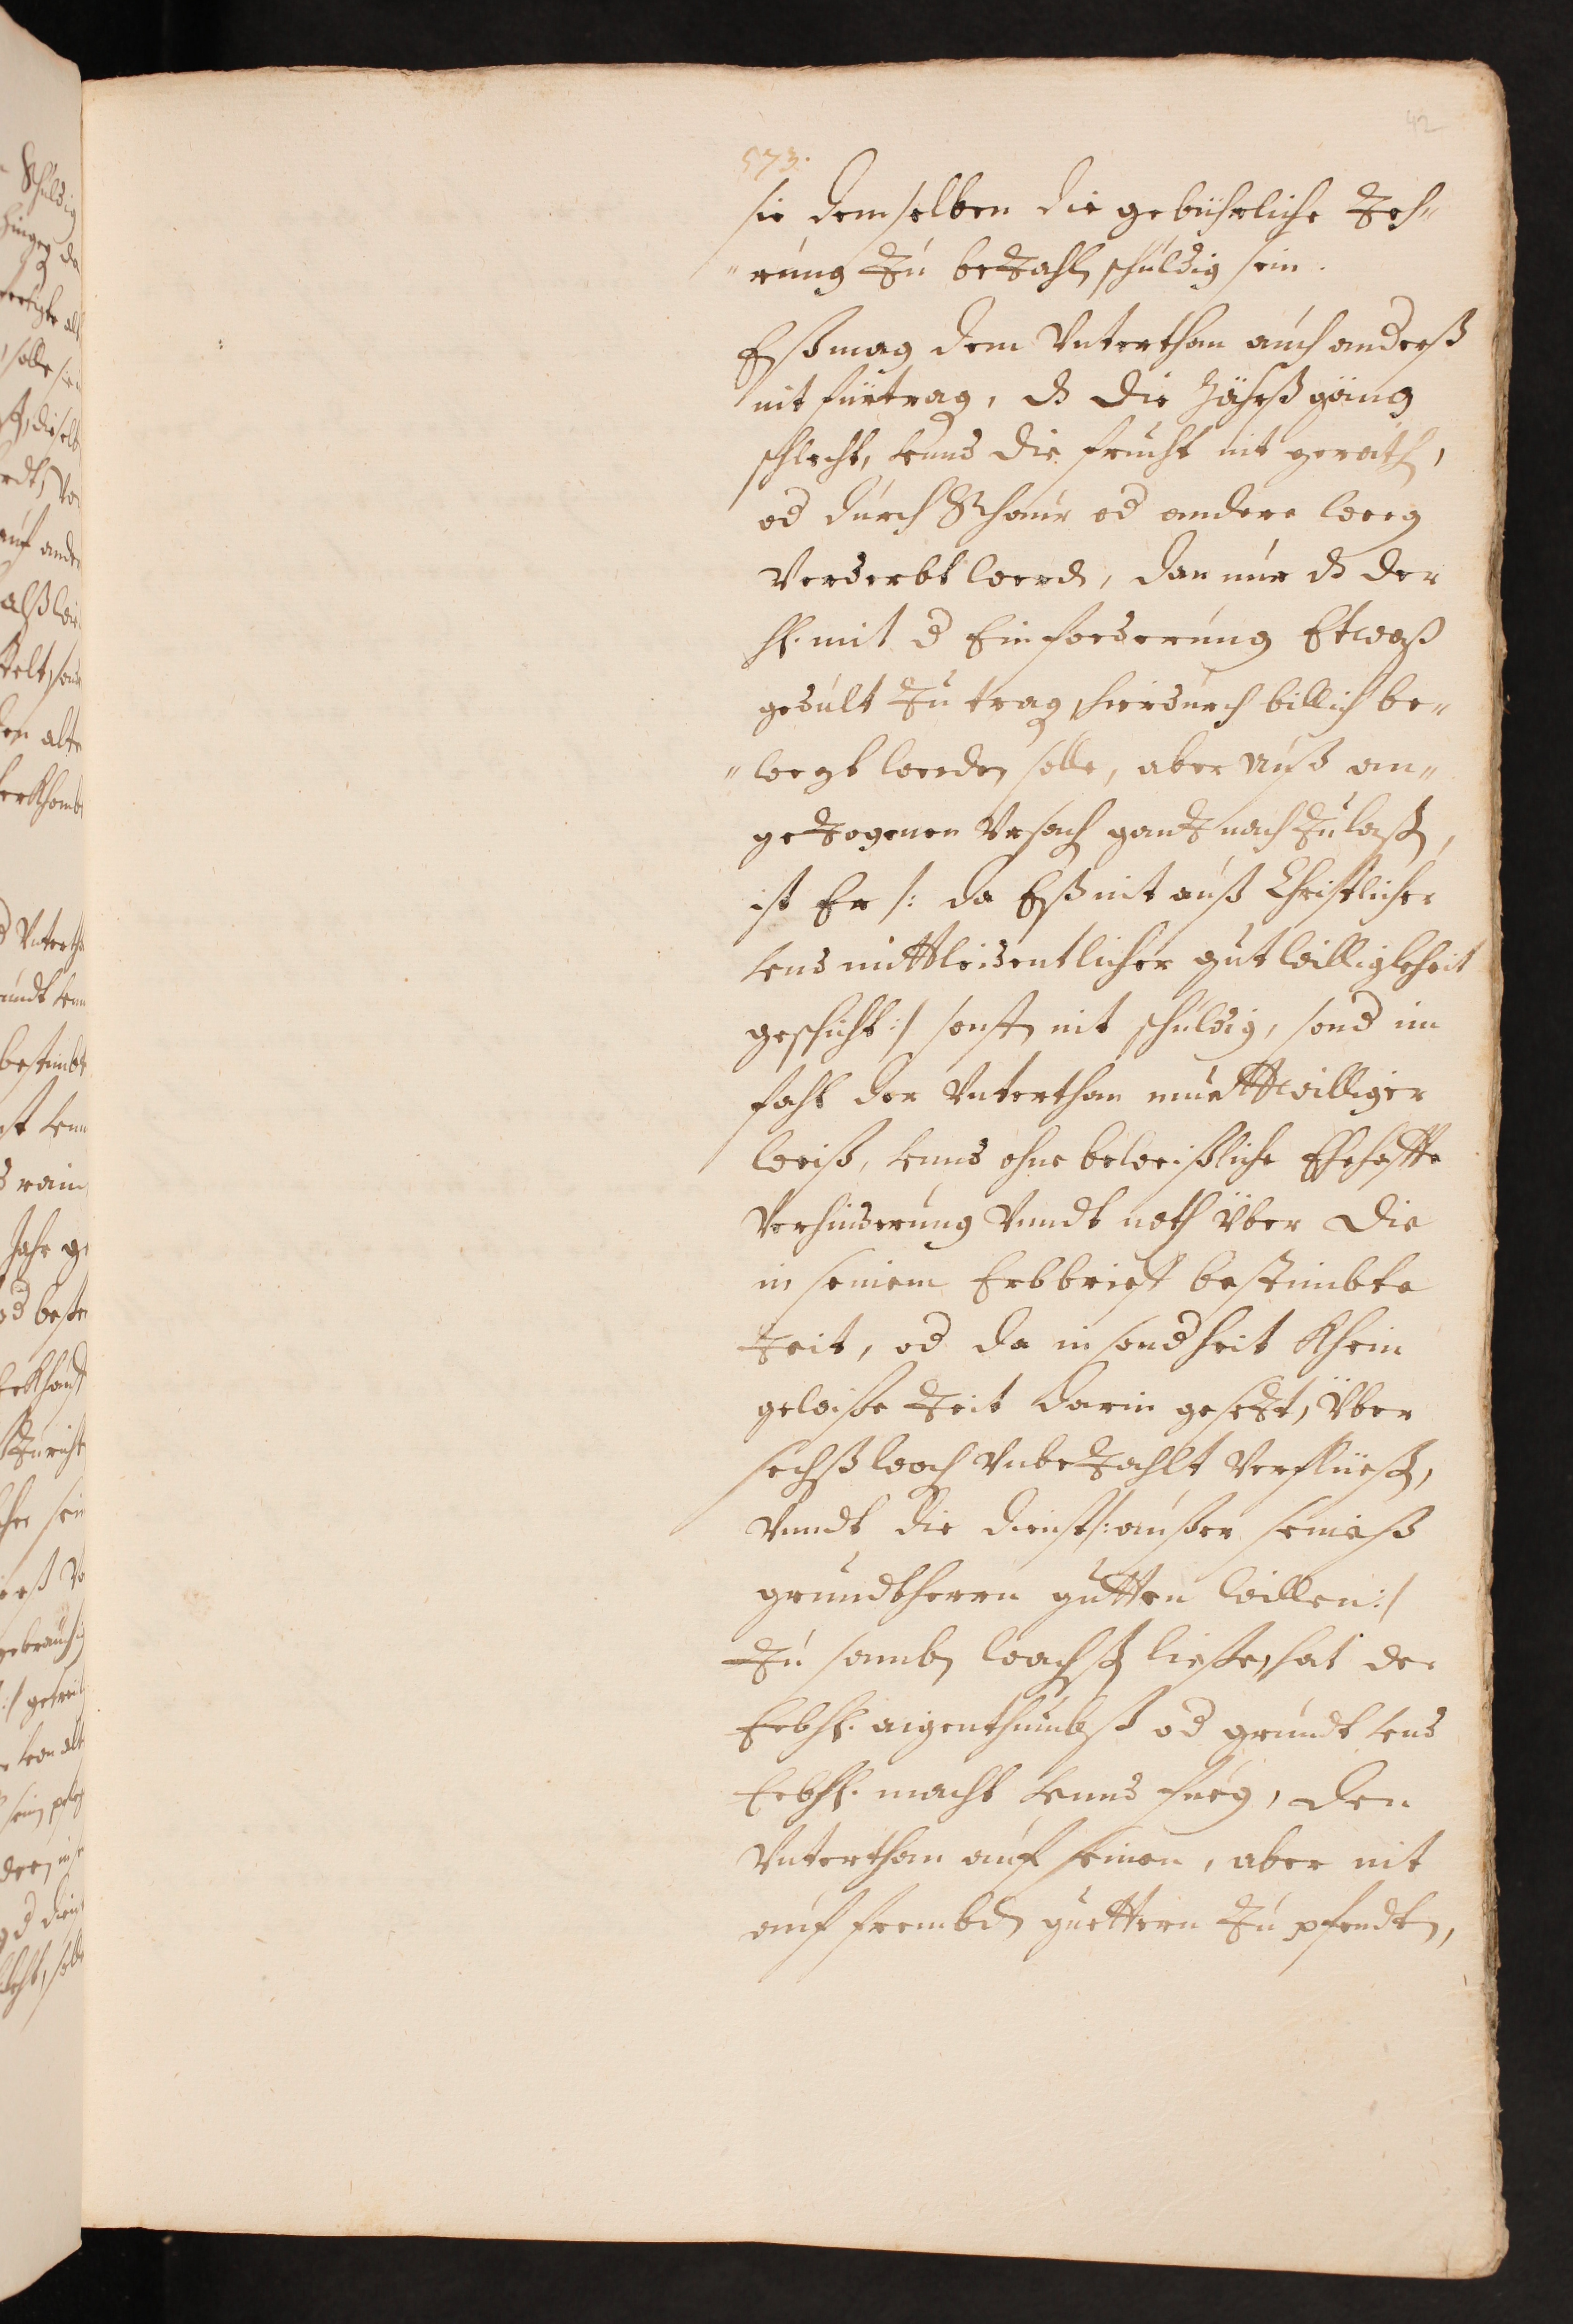 42
573.
sie demselben die gebührliche Zeh„
„rung zu bezahln schuldig sein.
Eß mag dem Vnterthan auch anderß
nit fürtrag, dz die Jahrßgäng
schlecht, vnnd die frucht nit gerath,
od durch Schaur od andere weeg
Verderbt werd, dan nur dz der
H. mit d Einforderung Etwaß
gedult zu trag, hierdurch billich be„
„wegt werden solle, aber auß an„
gezogenen Vrsach gantz nachzulaßn,
ist Er /: da Eß nit auß Christlicher
vnd mittleidentlicher guetwilligkheit
geschicht :/ sonstn nit schuldig, sond im
fahl der Vnterthan muettwilliger
weiß, vnnd ohne beweißliche Ehehaffte
Verhinderung Vnndt noth Über die
in seinem Erbbrieff bestimbte
Zeit, od da in sondheit khein
gewiße Zeit darin gesezt, Über
sechß woch Vnbezahlt Verflüeßn,
Vnndt die dienst /: ausser seineß
grundtherrn gutten willen :/
zu samb wachßn liesse, hat der
Erbh. aigenthumbß od grundt vnd
Erbh. macht vnnd fueg, den
Vnterthan auf seinen, aber nit
auf frembdn guettern zu pfendtn,